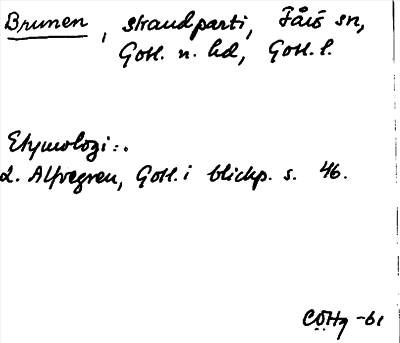 Brunen, strandparti, Fårö sn,
Gotl. n. hd, Gotl. l.
Etymologi:.
L. Alfvegren, Gotl. i blickp. s. 46.
COHg -61